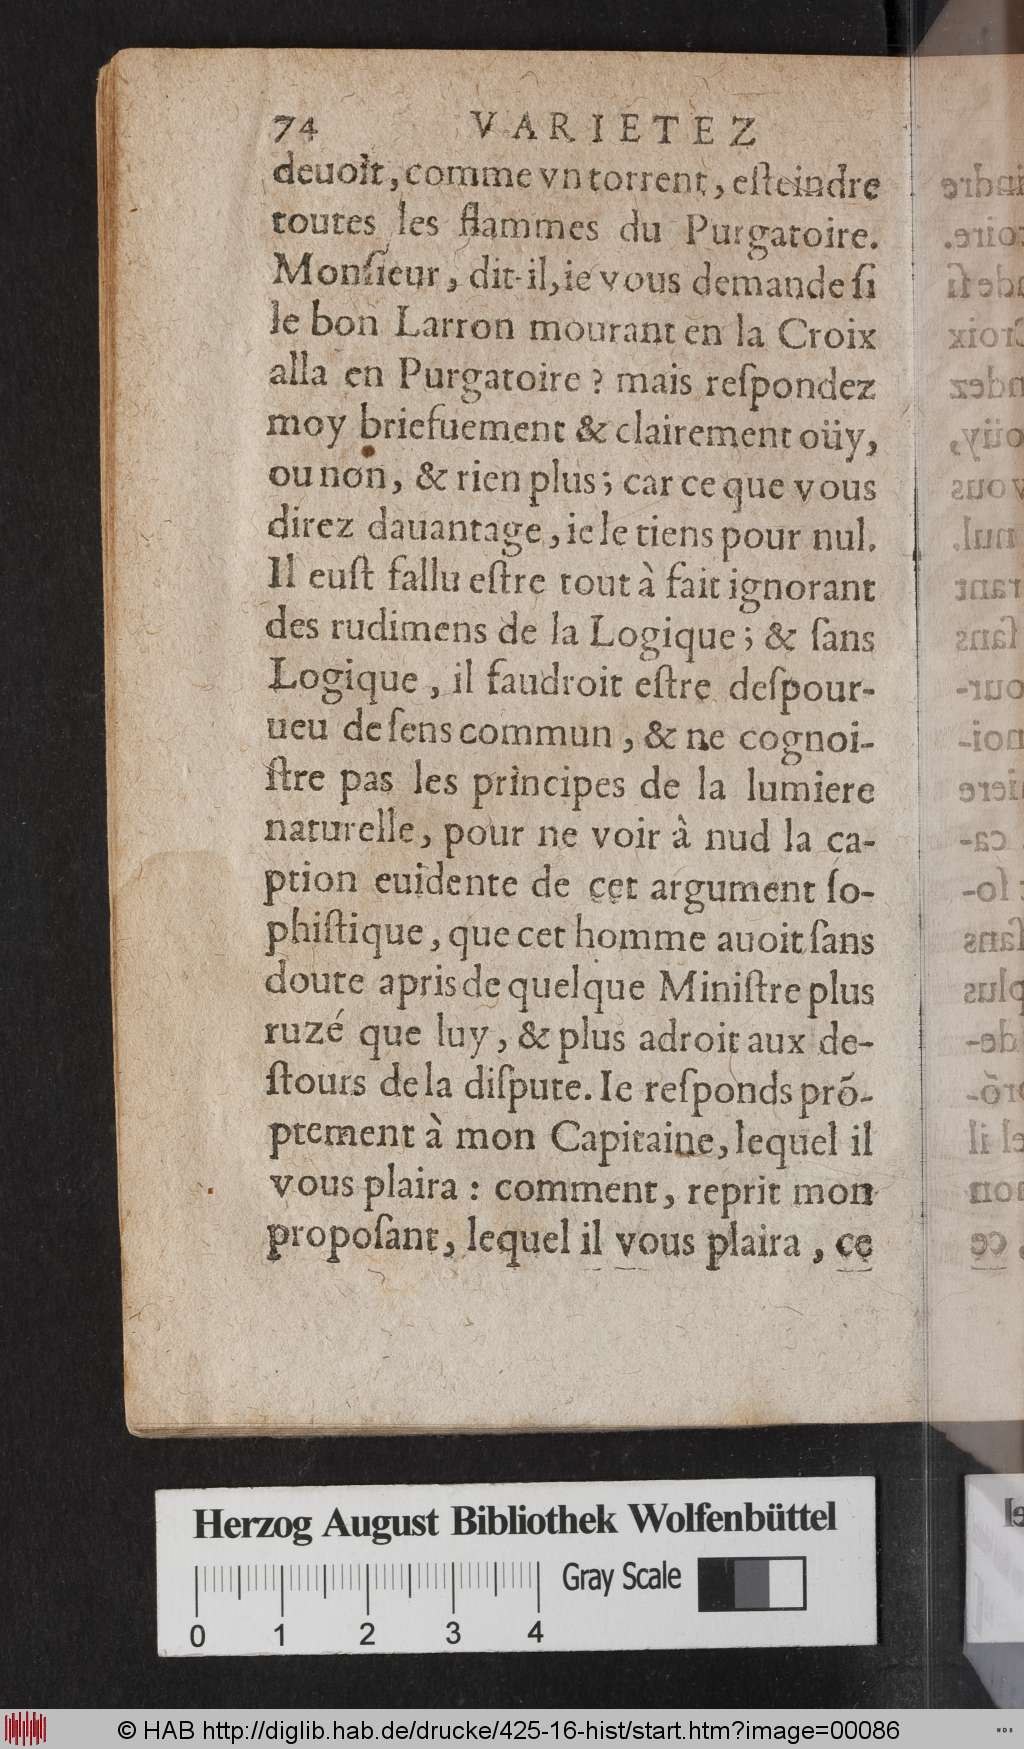 74 VARIETEZ
deuoit, comme vn torrent, eſteindre
toutes les flammes du Purgatoire.
Monſieur, dit-il, ie vous demande ſi
le bon Larron mourant en la Croix
alla en Purgatoire? mais reſpondez
moy briefuement & clairement oüy,
ou non, & rien plus; car ce que vous
direz dauantage, ie le tiens pour nul.
Il euſt fallu eſtre tout à fait ignorant
des rudimens de la Logique; & ſans
Logique, il faudroit eſtre deſpour-
ueu de ſens commun, & ne cognoi-
ſtre pas les principes de la lumiere
naturelle, pour ne voir à nud la ca-
ption euidente de cet argument ſo-
phiſtique, que cet homme auoit ſans
doute apris de quelque Miniſtre plus
ruzé que luy, & plus adroit aux de-
ſtours de la diſpute. Ie reſponds prõ-
ptement à mon Capitaine, lequel il
vous plaira: comment, reprit mon
propoſant, lequel il vous plaira, ce
Herzog August Bibliothek Wolfenbüttel
Gray Scale
0 1 2 3 4
© HAB http://diglib.hab.de/drucke/425-16-hist/start.htm?image=00086